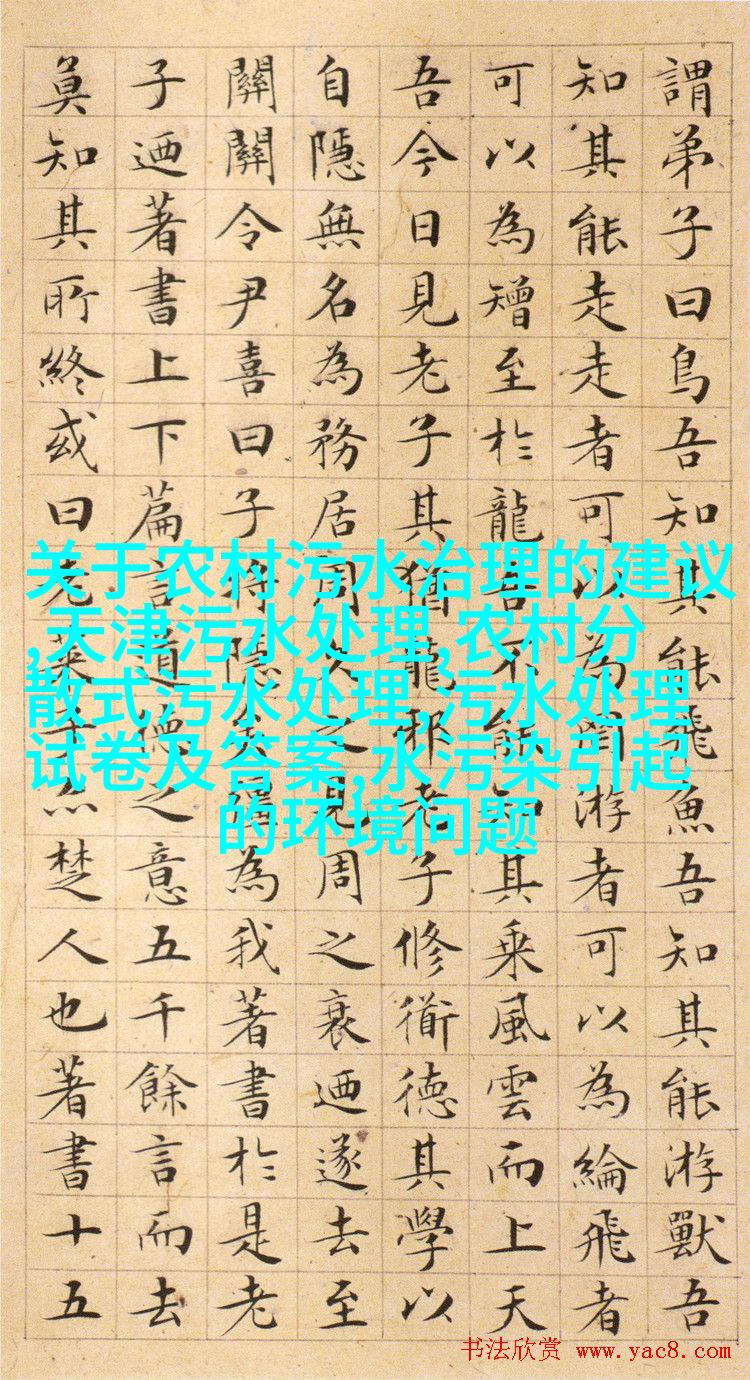 謂弟子曰鳥吾知其能飛魚吾知其能游獸吾
知其能走走者可以為罔游者可以為綸飛者
可以為矰至於龍吾不能知其乗風雲而上天
吾今日見老子其猶龍邪老子修衜德其學以
自隱無名為務居周久之見周之衰迺遂去至
關關令尹喜曰子將隱矣彊為我著書於是老
子迺著書上下篇言道德之意五千餘言而去
莫知其所終或曰老萊子亦楚人也著書十五
关于农村污水治理的建议
,天津污水处理,农村分
散式污水处理,污水处理
试卷及答案,水污染引起
的环境问题
书法欣赏 www.yac8.com